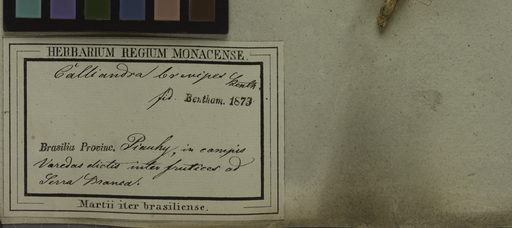 HERBARIUM REGIUM MONACENSE.
Calliandra brevipes Benth.
fid. Bentham. 1873
Brasilia Provinc. Piauhy, in campis
Varedas dictis inter frutices ad
Serra Branca.
Martii iter brasiliense.